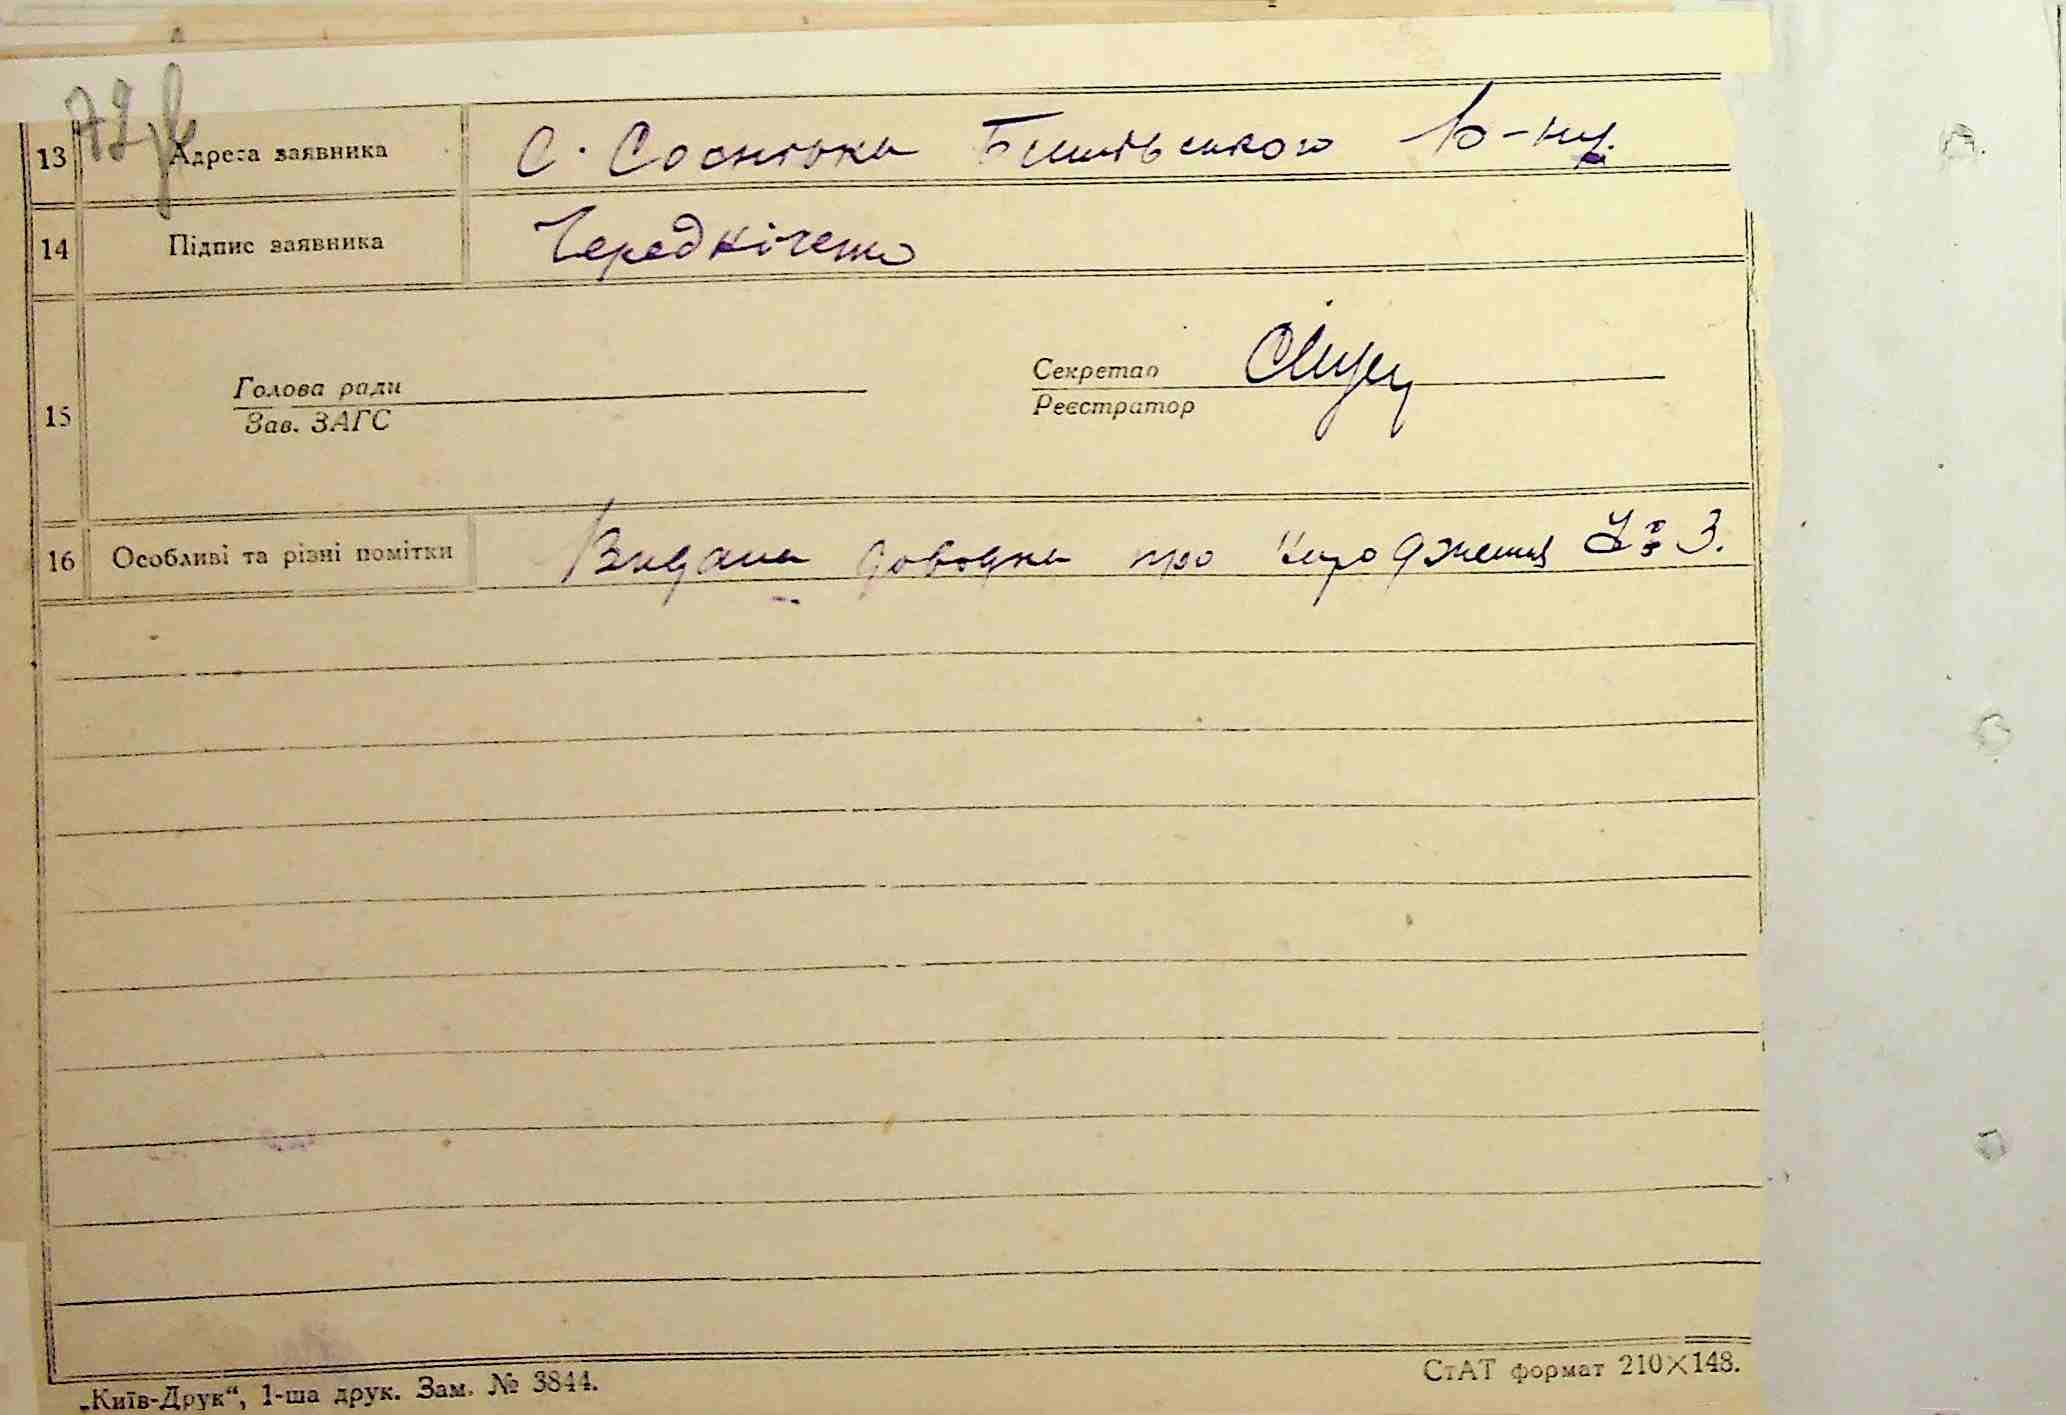 13 Адреса заявника С. Соснівка Бишівського р-ну.
14 Підпис заявника Чередніченко
Секретар
Голова ради
Реєстратор
15
Зав. ЗАГС
16 Особливі та різні помітки Видана довідка про народження № 3.
„Київ-Друк“, 1-ша друк. Зам. № 3844.
СтАТ формат 210×148.